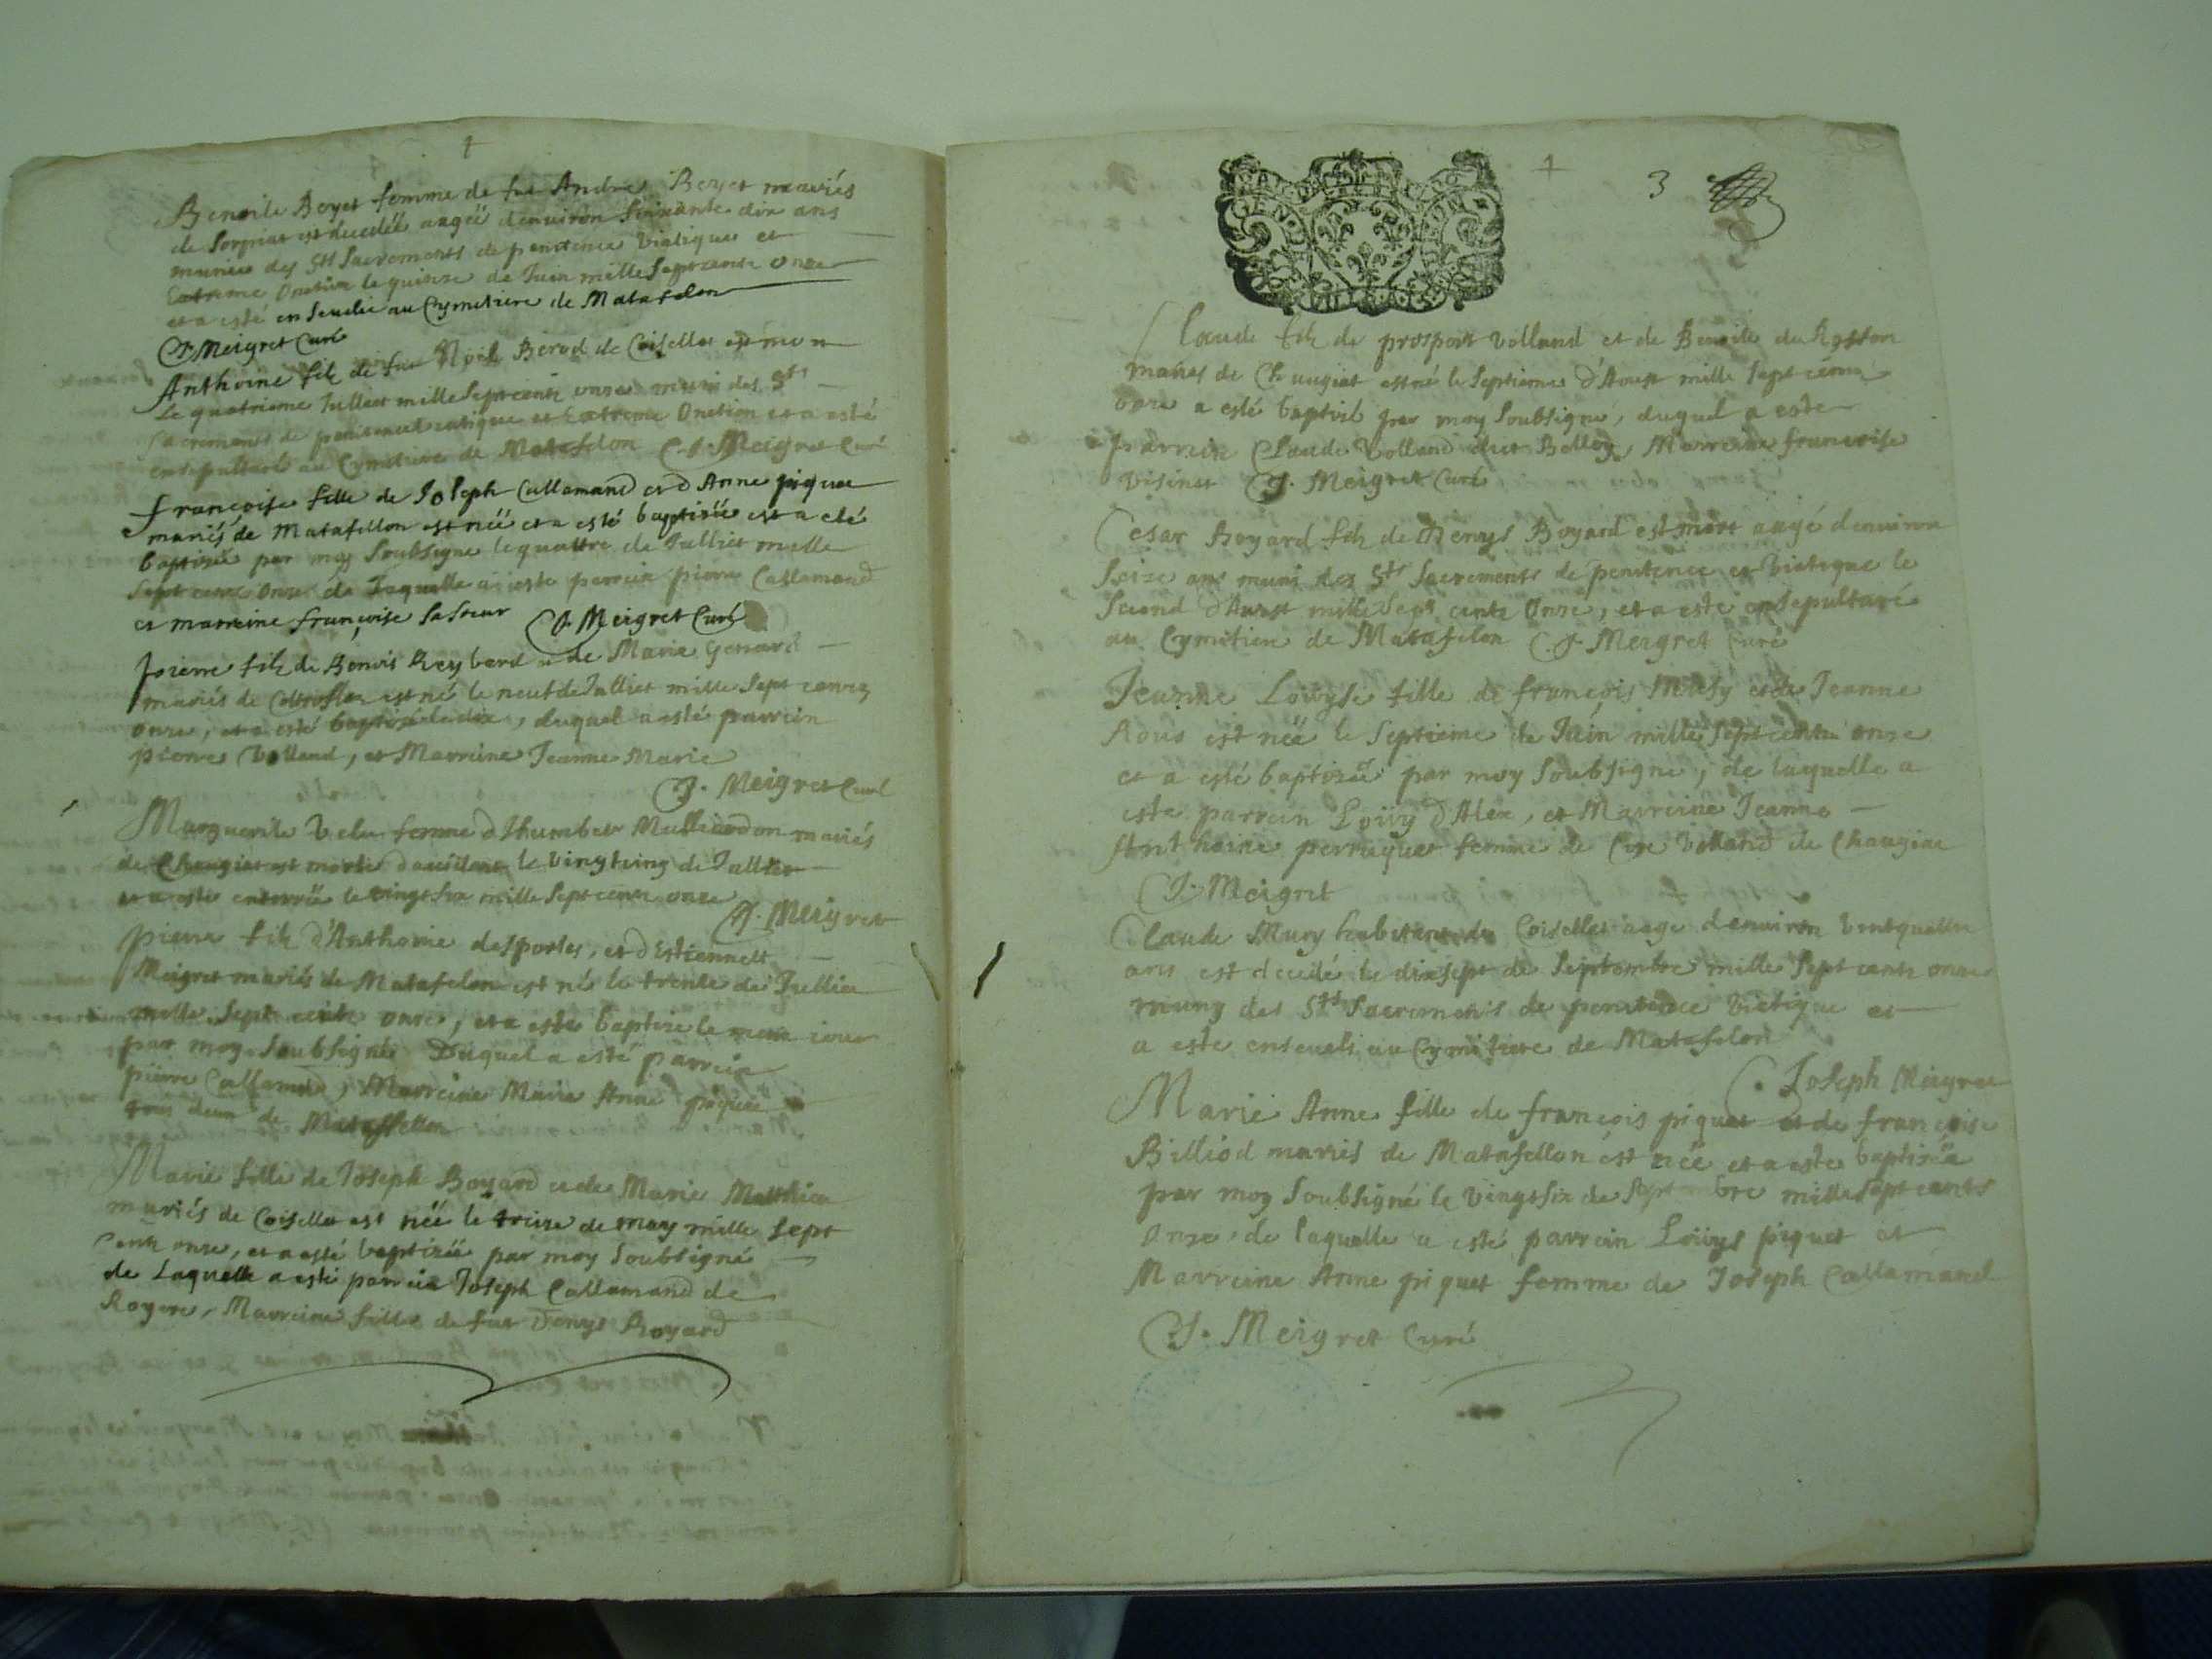 Benoite Boyet femme de fut Andre Boyet mariés
de Sorpiat est decedée augée denuiron Soixante dix ans
munie des Sts Sacrements de penitence Viatique et
Extreme Onction le quinze de Juin mille Sept cents onze
et a esté enseuelie au Cymetiere de Matafelon
J. Meigret Curé
Anthoine fils de fut Noël Berod de Coiselles est mort
Le quatrieme Julliet mille Sept cents onze muni des Sts
Sacrements de penitence viatique et Extreme Onction et a esté
ensepulturé au Cymetiere de Matafelon J. Meigret Curé
françoise fille de Joseph Callamand et d Anne piquet
mariés de Matafellon est née et a esté baptisée est a eté
baptisée par moy Soubsigné le quattre de Julliet mille
Sept cents onze de Laquelle a esté parrein pierre Callamand
et marreine françoise sa soeur J. Meigret Curé
pierre fils de Benois Reybard et de Marie
mariés de est né le neuf de Julliet mille Sept cents
onze, et a esté baptisé le dix, duquel a esté parrein
pierre Volland, et Marreine Jeanne Marie
J. Meigret Curé
Marguerite Velu femme d Humbert mariés
de Chaugiat est morte d'accident le Vingtcinq de Julliet
et a esté enterrée le vingt six mille Sept cents onze
J. Meigret
pierre fils d'Anthoine desportes, et d Estiennette
Meigret mariés de Matafelon est né le trente de Julliet
mille Sept cents onze, et a esté baptisé le mesme iour
par moy Soubsigné Duquel a esté parrein
pierre Callamand, Marreine Marie Anne piquet
tous deux de Mataffellon
Marie fille de Joseph Boyard et de Marie Matthieu
mariés de Coiselles est née le treize de may mille Sept
Cents onze, et a esté baptisée par moy Soubsigné
de Laquelle a esté parrein Joseph Callamand de
Rogere, Marreine fille de fut Denys Boyard
3
GEN
Claude fils de prospert Volland et de Benoite du Roston
mariés de Chaugiat est né le Septieme d'Aoust mille Sept cents
onze a esté baptisé par moy Soubsigné, duquel a esté
parrein Claude Volland dict Bolloz, Marreine françoise
Visinet J. Meigret Curé
Cesar Boyard fils de Denys Boyard est mort augé denuiron
Seize ans muni des Sts Sacrements de penitence et Viatique le
Second d'Aoust mille Sept cents Onze, et a esté ensepulturé
au Cymitiere de Matafelon J. Meigret Curé
Jeanne Loüyse fille de françois Miesy et de Jeanne
Roux est née le Septieme de Juin mille Sept cents onze
et a esté baptisée par moy Soubsigné, de laquelle a
esté parrein Loüy d'Alex, et Marreine Jeanne
Anthoine perruquet femme de Volland de Chaugiat
J. Meigret
Claude Mury habitant de Coiselles augé denuiron Vintquattre
ans est decedé le dixsept de Septembre mille Sept cents onze
muny des Sts Sacrements de penitence Viatique et
a esté enseueli au Cymitiere de Matafelon
Joseph Meigret
Marie Anne fille de françois piquet et de françoise
Billiod mariés de Matafellon est née et a esté baptisée
par moy Soubsigné le Vingtsix de Septembre mille Sept cents
Onze de laquelle a esté parrein Loüys piquet et
Marreine Anne piquet femme de Joseph Callamand
J. Meigret Curé